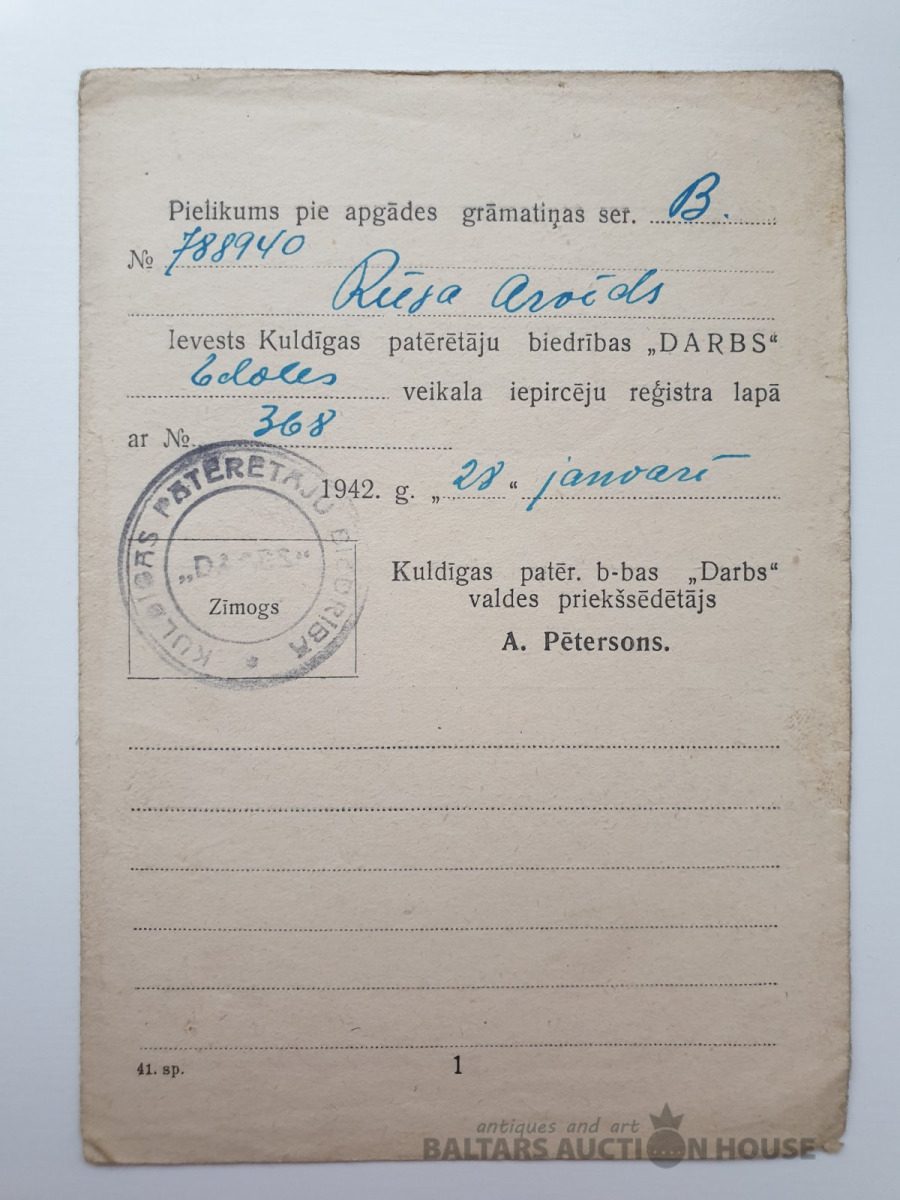 Pielikums pie apgādes grāmatiņas ser. B.
№ 788940
Rūsa Arvīds
Ievests Kuldīgas patērētāju biedrības „DARBS“
Edoles veikala iepircēju reģistra lapā
ar № 368
1942. g. „28“ janvarī
KULDĪGAS PATĒRĒTĀJU BIEDRĪBA *
„DARBS“
Zīmogs
Kuldīgas patēr. b-bas „Darbs“
valdes priekšsēdētājs
A. Pētersons.
41. sp.
1
antiques and art
BALTARS AUCTION HOUSE